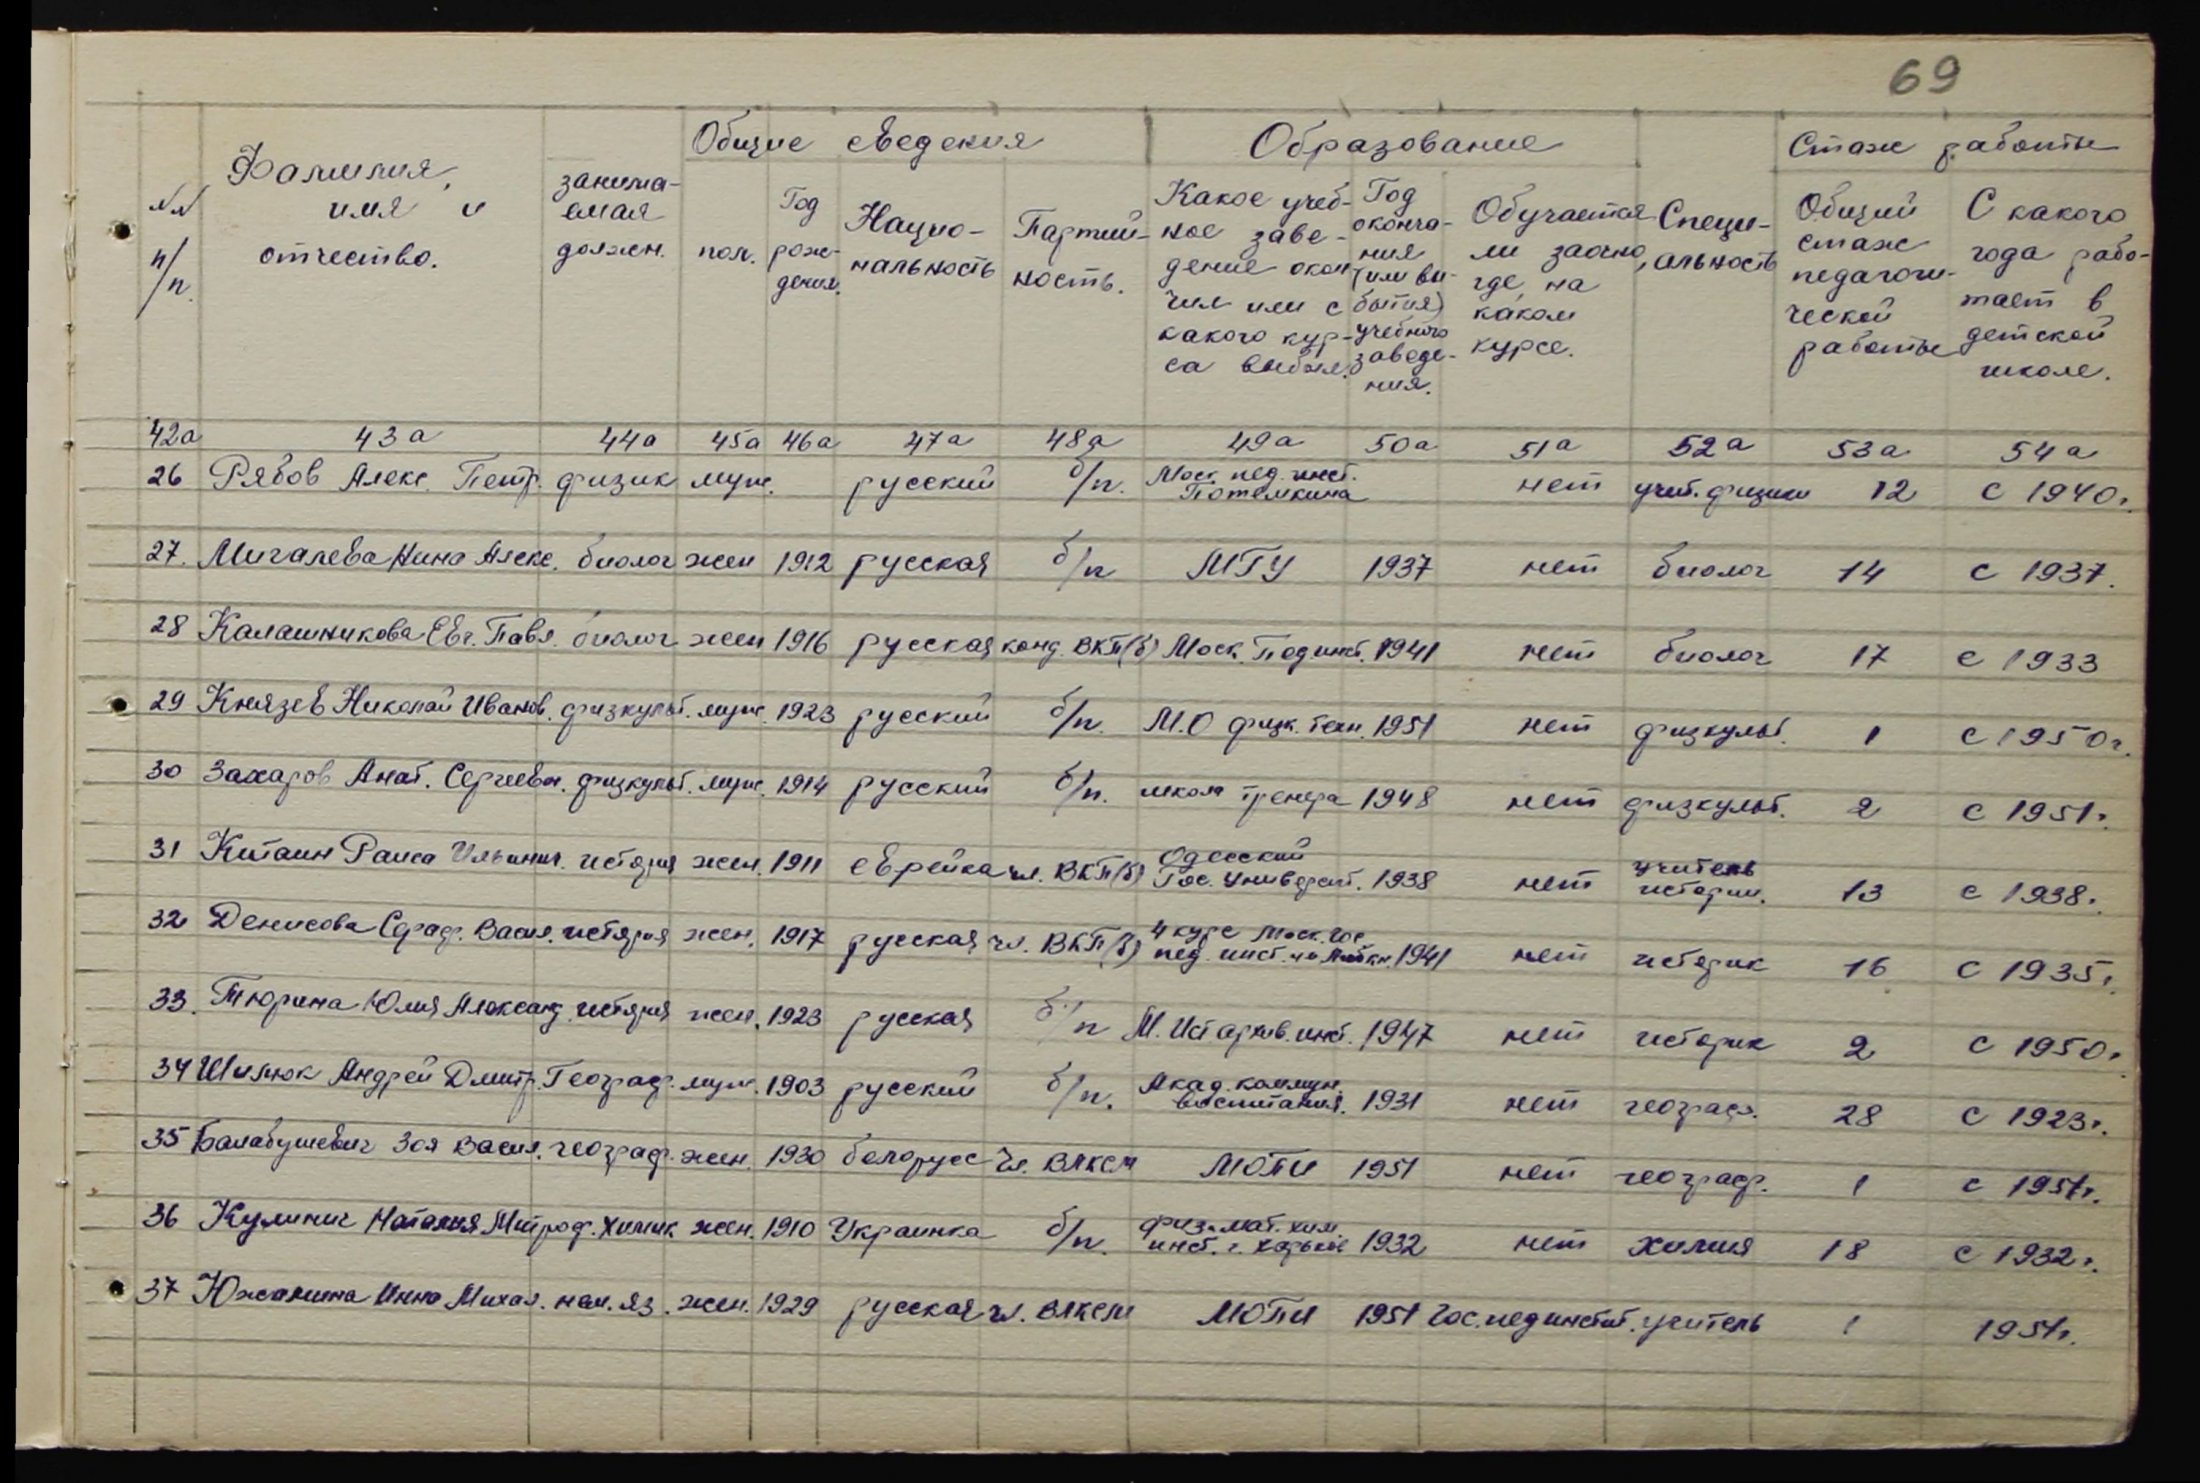 69
Общие сведения Образование Стаж работы
№№ п/п. Фамилия, имя и отчество. занима-емая должен. пол. Год рож-дения. Нацио-нальность Партий-ность. Какое учеб-ное заве-дение окон-чил или с какого кур-са выбыл. Год оконча-ния (или вы-бытия) учебного заведе-ния. Обучается ли заочно, где, на каком курсе. Специ-альность Общий стаж педагоги-ческой работы С какого года рабо-тает в детской школе.
42а 43а 44а 45а 46а 47а 48а 49а 50а 51а 52а 53а 54а
26 Рябов Алекс. Петр. физик муж. русский б/п. Моск. пед. инст. Потемкина нет учит. физики 12 с 1940г.
27. Мигалева Нина Алекс. биолог жен 1912 русская б/п МГУ 1937 нет биолог 14 с 1937.
28 Калашникова Евг. Павл. биолог жен 1916 русская канд. ВКП(б) Моск. Пединст. 1941 нет биолог 17 с 1933
29 Князев Николай Иванов. физкульт. муж. 1923 русский б/п. М.О физк. техн. 1951 нет физкульт. 1 с 1950г.
30 Захаров Анат. Сергеевич. физкульт. муж. 1914 русский б/п. школа тренера 1948 нет физкульт. 2 с 1951г.
31 Китаин Раиса Ильинич. история жен. 1911 еврейка чл. ВКП(б) Одесский Гос. Университ. 1938 нет учитель истории. 13 с 1938г.
32 Денисова Сераф. Васил. история жен. 1917 русская чл. ВКП(б) 4 курс Моск. гос пед. инст. 1941 нет историк 16 с 1935г.
33. Тюрина Юлия Александ. история жен. 1923 русская б/п М. Ист архив. инст. 1947 нет историк 2 с 1950г.
34 Шилюк Андрей Дмитр. Географ. муж. 1903 русский б/п. Акад. коммун. воспитания. 1931 нет географ. 28 с 1923г.
35 Балабушевич Зоя Васил. географ. жен. 1930 белорус Чл. ВЛКСМ МОПИ 1951 нет географ. 1 с 1951г.
36 Кулинич Наталия Митроф. Химик жен. 1910 Украинка б/п. физ.-мат. хим. инст. г. Харьков 1932 нет химия 18 с 1932г.
37 Южанина Инна Михал. нем. яз. жен. 1929 русская чл. ВЛКСМ МОПИ 1951 Гос. пединстит. учитель 1 1951г.